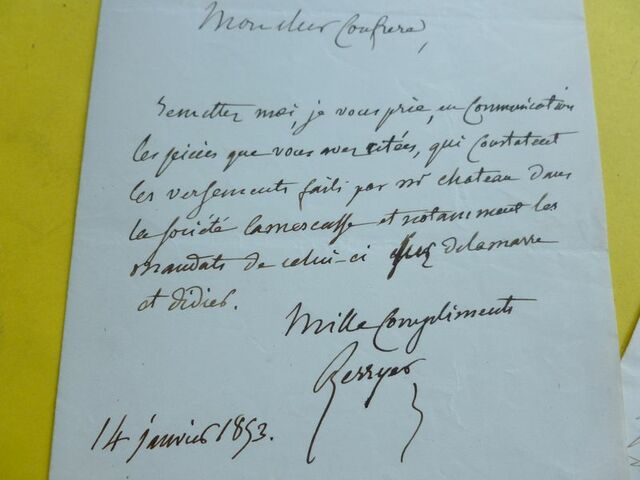 Mon cher Confrere,
Remettez moi, je vous prie, en Communication
les pièces que vous avez citées, qui Constatent
les versements faits par Mr chateau dans
la Société lamescasse et notamment les
mandats de celui-ci sur delamarre
et didier.
Mille Compliments
Berryer
14 janvier 1853.